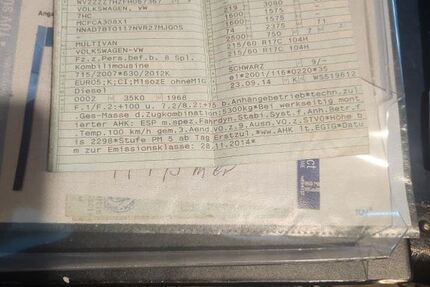 VOLKSWAGEN, VW
7HC
MCFCA308X1
NNAD7BT0117NVR27MJG0S
MULTIVAN
VOLKSWAGEN-VW
Fz.z.Pers.bef.b. 8 Spl.
Kombilimousine
715/2007*630/2012K
EURO5;K;CI;M1sozE ohneM1G
Diesel
0002 35K0 1968
219 3080
1500
1600 1575
74 2375
2500 750
215/60 R17C 104H
215/60 R17C 104H
SCHWARZ 9/-
e1*2001/116*0220*35
23.09.14 K WS519612
F.1/F.2:+100 u. 7.2/8.2:+75 b.Anhängebetrieb*techn.zul
.Ges-Masse d.Zugkombination:5300kg*Bei werkseitig mont
ierter AHK: ESP m.spez.Fahrdyn.Stabi.Syst.f.Anh.Betr.f
.Temp.100 km/h gem.3.Aend.VO.z.9.Ausn.VO.z.STVO*Höhe b
is 2298*Stufe PM 5 ab Tag Erstzul.*ww.AHK lt.EGTG*Datu
m zur Emissionsklasse: 28.11.2014*